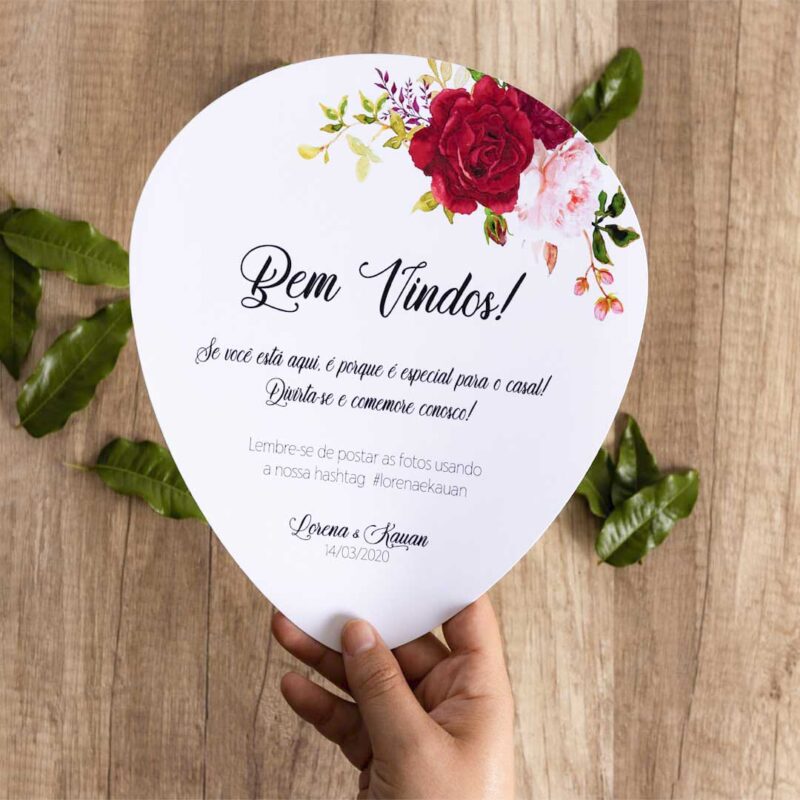 Bem Vindos!
Se você está aqui, é porque é especial para o casal!
Divirta-se e comemore conosco!
Lembre-se de postar as fotos usando
a nossa hashtag #lorenaekauan
Lorena & Kauan
14/03/2020